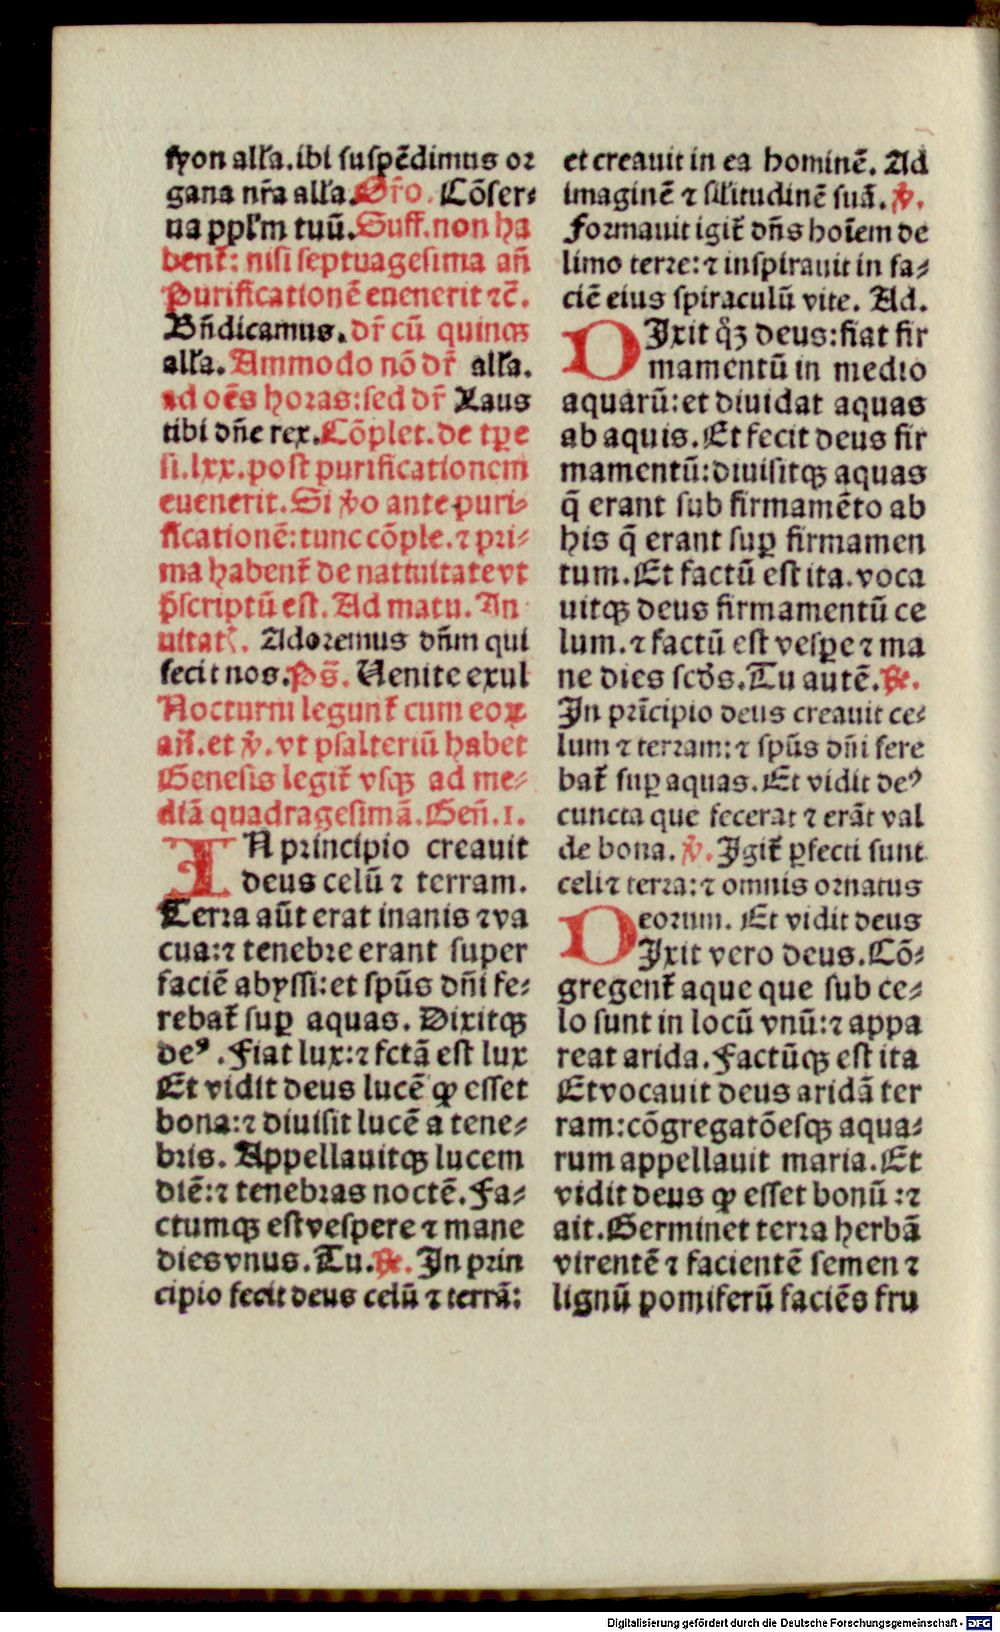 syon all'a. ibi suspēdimus or
gana nr̄a all'a. Or̄o. Cōser-
ua ppl'm tuū. Suff. non ha
bent᷑: nisi septuagesima an̄
Purificationē euenerit ⁊c̄.
Bn̄dicamus. dr̄ cū quinqꝫ
all'a. Ammodo nō dr̄ all'a.
ad oēs horas: sed dr̄ Laus
tibi dn̄e rex. Cōplet. de tꝑe
si. lxx. post purificationem
euenerit. Si v̊o ante puri-
ficationē: tunc cōple. ⁊ pri-
ma habent᷑ de natiuitate vt
p̄scriptū est. Ad matu. In
uitat. Adoremus dn̄m qui
fecit nos. Ps̄. Uenite exul
Nocturni legunt᷑ cum eoꝝ
an̄. et ℣. vt psalteriū habet
Genesis legit᷑ vsqꝫ ad me-
diā quadragesimā. Gen̄. 1.
IN principio creauit
deus celū ⁊ terram.
Terra aūt erat inanis ⁊ va
cua: ⁊ tenebre erant super
faciē abyssi: et spūs dn̄i fe-
rebat᷑ suꝑ aquas. Dixitqꝫ
deꝰ. Fiat lux: ⁊ fctā est lux
Et vidit deus lucē ꝙ esset
bona: ⁊ diuisit lucē a tene-
bris. Appellauitqꝫ lucem
diē: ⁊ tenebras noctē. Fa-
ctumqꝫ est vespere ⁊ mane
dies vnus. Tu. ℟. In prin
cipio fecit deus celū ⁊ terrā:
et creauit in ea hominē. Ad
imaginē ⁊ sil'itudinē suā. ℣.
Formauit igit᷑ dn̄s hoīem de
limo terre: ⁊ inspirauit in fa-
ciē eius spiraculū vite. Ad.
DIxit qͦꝫ deus: fiat fir
mamentū in medio
aquarū: et diuidat aquas
ab aquis. Et fecit deus fir
mamentū: diuisitqꝫ aquas
q̄ erant sub firmamēto ab
his q̄ erant suꝑ firmamen
tum. Et factū est ita. voca
uitqꝫ deus firmamentū ce
lum. ⁊ factū est vesꝑe ⁊ ma
ne dies scd̄s. Tu autē. ℟.
In prīcipio deus creauit ce-
lum ⁊ terram: ⁊ spūs dn̄i fere
bat᷑ suꝑ aquas. Et vidit deꝰ
cuncta que fecerat ⁊ erāt val
de bona. ℣. Igit᷑ ꝑfecti sunt
celi ⁊ terra: ⁊ omnis ornatus
eorum. Et vidit deus
DIxit vero deus. Cō-
gregent᷑ aque que sub ce-
lo sunt in locū vnū: ⁊ appa
reat arida. Factūqꝫ est ita
Et vocauit deus aridā ter
ram: cōgregatōesqꝫ aqua-
rum appellauit maria. Et
vidit deus ꝙ esset bonū : ⁊
ait. Germinet terra herbā
virentē ⁊ facientē semen ⁊
lignū pomiferū faciēs fru
Digitalisierung gefördert durch die Deutsche Forschungsgemeinschaft - DFG